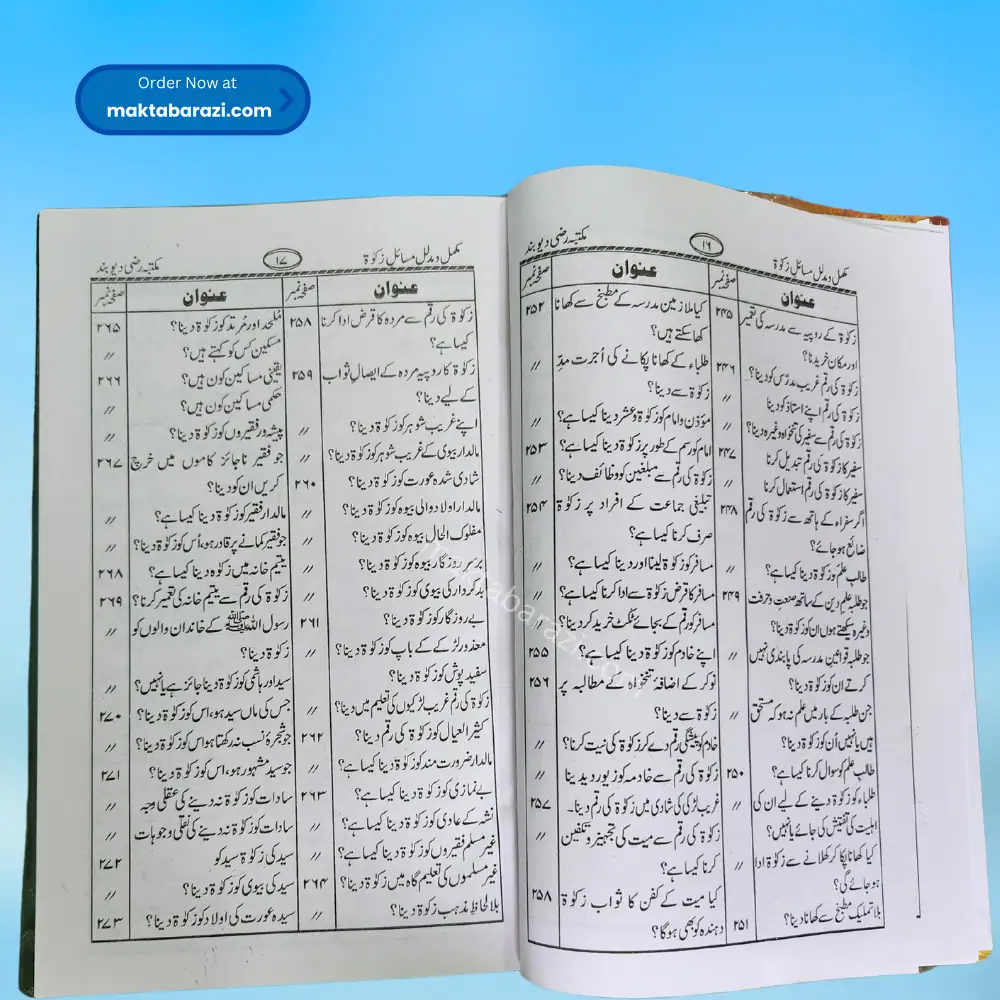 Order Now at
maktabarazi.com
مکمل و مدلل مسائل زکوٰۃ
۱۶
مکتبہ رضی دیوبند
عنوان
صفحہ نمبر
زکوٰۃ کے روپیہ سے مدرسہ کی تعمیر ۲۴۵
اور مکان خریدنا؟
زکوٰۃ کی رقم غریب مدرّس کو دینا؟ ۲۴۶
زکوٰۃ کی رقم اپنے استاذ کو دینا
زکوٰۃ کی رقم سے سفیر کی تنخواہ وغیرہ دینا؟ 〃
سفیر کا زکوٰۃ کی رقم تبدیل کرنا ۲۴۷
سفیر کا زکوٰۃ کی رقم استعمال کرنا 〃
اگر سفراء کے ہاتھ سے زکوٰۃ کی رقم ۲۴۸
ضائع ہو جائے؟
طالب علم کو زکوٰۃ دینا کیسا ہے؟ 〃
جو طلبہ علم دین کے ساتھ صنعت و حرفت ۲۴۹
وغیرہ سیکھتے ہوں ان کو زکوٰۃ دینا؟
جو طلبہ قوانین مدرسہ کی پابندی نہیں 〃
کرتے ان کو زکوٰۃ دینا؟
جن طلبہ کے بار میں علم نہ ہو کہ مستحق 〃
ہیں یا نہیں اُن کو زکوٰۃ دینا؟
طالب علم کو سوال کرنا کیسا ہے؟ ۲۵۰
طلباء کو زکوٰۃ دینے کے لیے ان کی 〃
اہلیت کی تفتیش کی جائے یا نہیں؟
کیا کھانا پکا کر کھلانے سے زکوٰۃ ادا 〃
ہو جائے گی؟
بلا تملیک مطبخ سے کھانا دینا؟ ۲۵۱
عنوان
صفحہ نمبر
کیا ملازمین مدرسہ کے مطبخ سے کھانا ۲۵۲
کھا سکتے ہیں؟
طلباء کے کھانا پکانے کی اُجرت مدِّ 〃
زکوٰۃ سے دینا؟
مؤذن و امام کو زکوٰۃ و عشر دینا کیسا ہے؟ 〃
امام کو رسم کے طور پر زکوٰۃ دینا کیسا ہے؟ ۲۵۳
زکوٰۃ کی رقم سے مبلغین کو وظائف دینا؟ 〃
تبلیغی جماعت کے افراد پر زکوٰۃ ۲۵۴
صرف کرنا کیسا ہے؟
مسافر کو زکوٰۃ لینا اور دینا کیسا ہے؟ 〃
مسافر کا قرض زکوٰۃ سے ادا کرنا کیسا ہے؟ 〃
مسافر کو رقم کے بجائے ٹکٹ خرید کر دینا؟ 〃
اپنے خادم کو زکوٰۃ دینا کیسا ہے؟ ۲۵۵
نوکر کے اضافۂ تنخواہ کے مطالبہ پر ۲۵۶
زکوٰۃ سے دینا؟
خادم کو پیشگی رقم دے کر زکوٰۃ کی نیت کرنا؟ 〃
زکوٰۃ کی رقم سے خادمہ کو زیور دیدینا 〃
غریب لڑکی کی شادی میں زکوٰۃ کی رقم دینا۔ ۲۵۷
زکوٰۃ کی رقم سے میت کی تجہیز و تکفین 〃
کرنا کیسا ہے؟
کیا میت کے کفن کا ثواب زکوٰۃ ۲۵۸
دہندہ کو بھی ہو گا؟
مکمل و مدلل مسائل زکوٰۃ
۱۷
مکتبہ رضی دیوبند
عنوان
صفحہ نمبر
زکوٰۃ کی رقم سے مردہ کا قرض ادا کرنا ۲۵۸
کیسا ہے؟
زکوٰۃ کا روپیہ مردہ کے ایصالِ ثواب ۲۵۹
کے لیے دینا؟
اپنے غریب شوہر کو زکوٰۃ دینا؟ 〃
مالدار بیوی کے غریب شوہر کو زکوٰۃ دینا؟ 〃
شادی شدہ عورت کو زکوٰۃ دینا؟ ۲۶۰
مالدار اولاد والی بیوہ کو زکوٰۃ دینا؟ 〃
مفلوک الحال بیوہ کو زکوٰۃ دینا؟ 〃
برسر روزگار بیوہ کو زکوٰۃ دینا؟ 〃
بدکردار کی بیوی کو زکوٰۃ دینا؟ 〃
بے روزگار کو زکوٰۃ دینا؟ ۲۶۱
معذور لڑکے کے باپ کو زکوٰۃ دینا؟ 〃
سفید پوش کو زکوٰۃ دینا؟
زکوٰۃ کی رقم غریب لڑکیوں کی تعلیم میں دینا؟ 〃
کثیر العیال کو زکوٰۃ کی رقم دینا؟ ۲۶۲
مالدار ضرورت مند کو زکوٰۃ دینا کیسا ہے؟ 〃
بے نمازی کو زکوٰۃ دینا کیسا ہے؟ ۲۶۳
نشہ کے عادی کو زکوٰۃ دینا کیسا ہے؟ 〃
غیر مسلم فقیروں کو زکوٰۃ دینا کیسا ہے؟ 〃
غیر مسلموں کی تعلیم گاہ میں زکوٰۃ دینا؟ ۲۶۴
بلا لحاظِ مذہب زکوٰۃ دینا؟ 〃
عنوان
صفحہ نمبر
مُلحد اور مُرتد کو زکوٰۃ دینا؟ ۲۶۵
مسکین کس کو کہتے ہیں؟ 〃
یقینی مساکین کون ہیں؟ ۲۶۶
حکمی مساکین کون ہیں؟ 〃
پیشہ ور فقیروں کو زکوٰۃ دینا؟ 〃
جو فقیر ناجائز کاموں میں خرچ ۲۶۷
کریں ان کو دینا؟
مالدار فقیر کو زکوٰۃ دینا کیسا ہے؟ 〃
جو فقیر کمانے پر قادر ہو، اُس کو زکوٰۃ دینا؟ 〃
یتیم خانہ میں زکوٰۃ دینا کیسا ہے؟ ۲۶۸
زکوٰۃ کی رقم سے یتیم خانہ کی تعمیر کرنا؟ ۲۶۹
رسول اللہ ﷺ کے خاندان والوں کو 〃
زکوٰۃ دینا؟
سید اور ہاشمی کو زکوٰۃ دینا جائز ہے یا نہیں؟ 〃
جس کی ماں سید ہو، اس کو زکوٰۃ دینا؟ ۲۷۰
جو شجرۂ نسب نہ رکھتا ہو اس کو زکوٰۃ دینا؟ 〃
جو سید مشہور ہو، اس کو زکوٰۃ دینا؟ ۲۷۱
سادات کو زکوٰۃ نہ دینے کی عقلی وجہ 〃
سادات کو زکوٰۃ نہ دینے کی نقلی وجوہات 〃
سید کی زکوٰۃ سید کو ۲۷۲
سید کی بیوی کو زکوٰۃ دینا؟ 〃
سیدہ عورت کی اولاد کو زکوٰۃ دینا؟ ۲۷۳